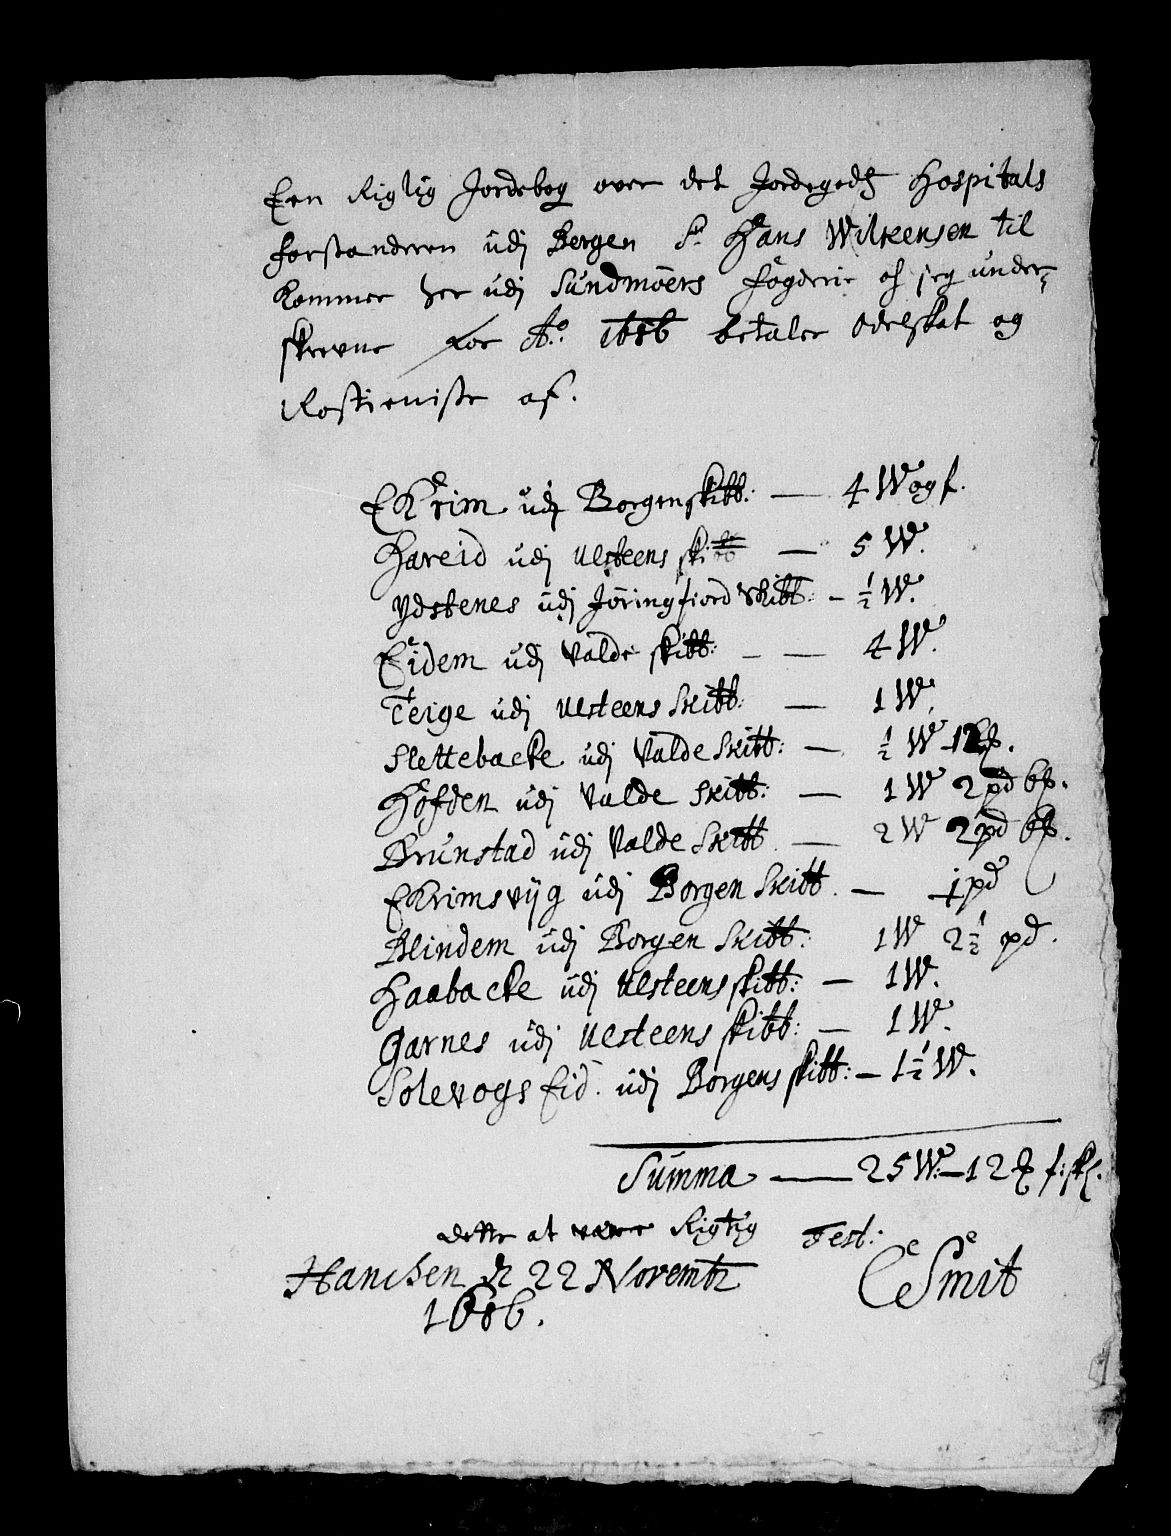 Een Rigtig Jordebog over det Jordegodtz Hospitals
forstanderen udj Bergen Sr. Hans Wilkensen til
kommer her udj Sundmöers fogderie og jeg under-
skrevne for Ao. 1686 betaler odelskat og
Rostieniste af.
Ekrim udj Borgenskibb: — 4 Wog f.
Hareid udj Ulsteens skibb — 5 W.
Ydstenes udj Jöringfiord skibb: — ½ W.
Eidem udj Valde skibb: — — 4 W.
Teige udj Ulsteens Skibb: — 1 W.
Slettebacke udj Valde Skibb: — ½ W 12 .
Höfden udj Valde Skibb: — 1 W 2 pd 6 .
Brunstad udj Valde Skibb — 2 W 2 pd 6 .
Ekrimsvijg udj Borgen Skibb. — 1 pd
Blindem udj Borgen Skibb: 1 W 2½ pd.
Haabacke udj Ulsteens skibb: — 1 W.
Garnes udj Ulsteens skibb: — 1 W.
Solevogs Eid. udj Borgens skibb: — 1½ W.
Summa — 25 W: — 12 f:
dette at være Rigtig Test:
Hanchen d 22 Novembr CSmit
1686.